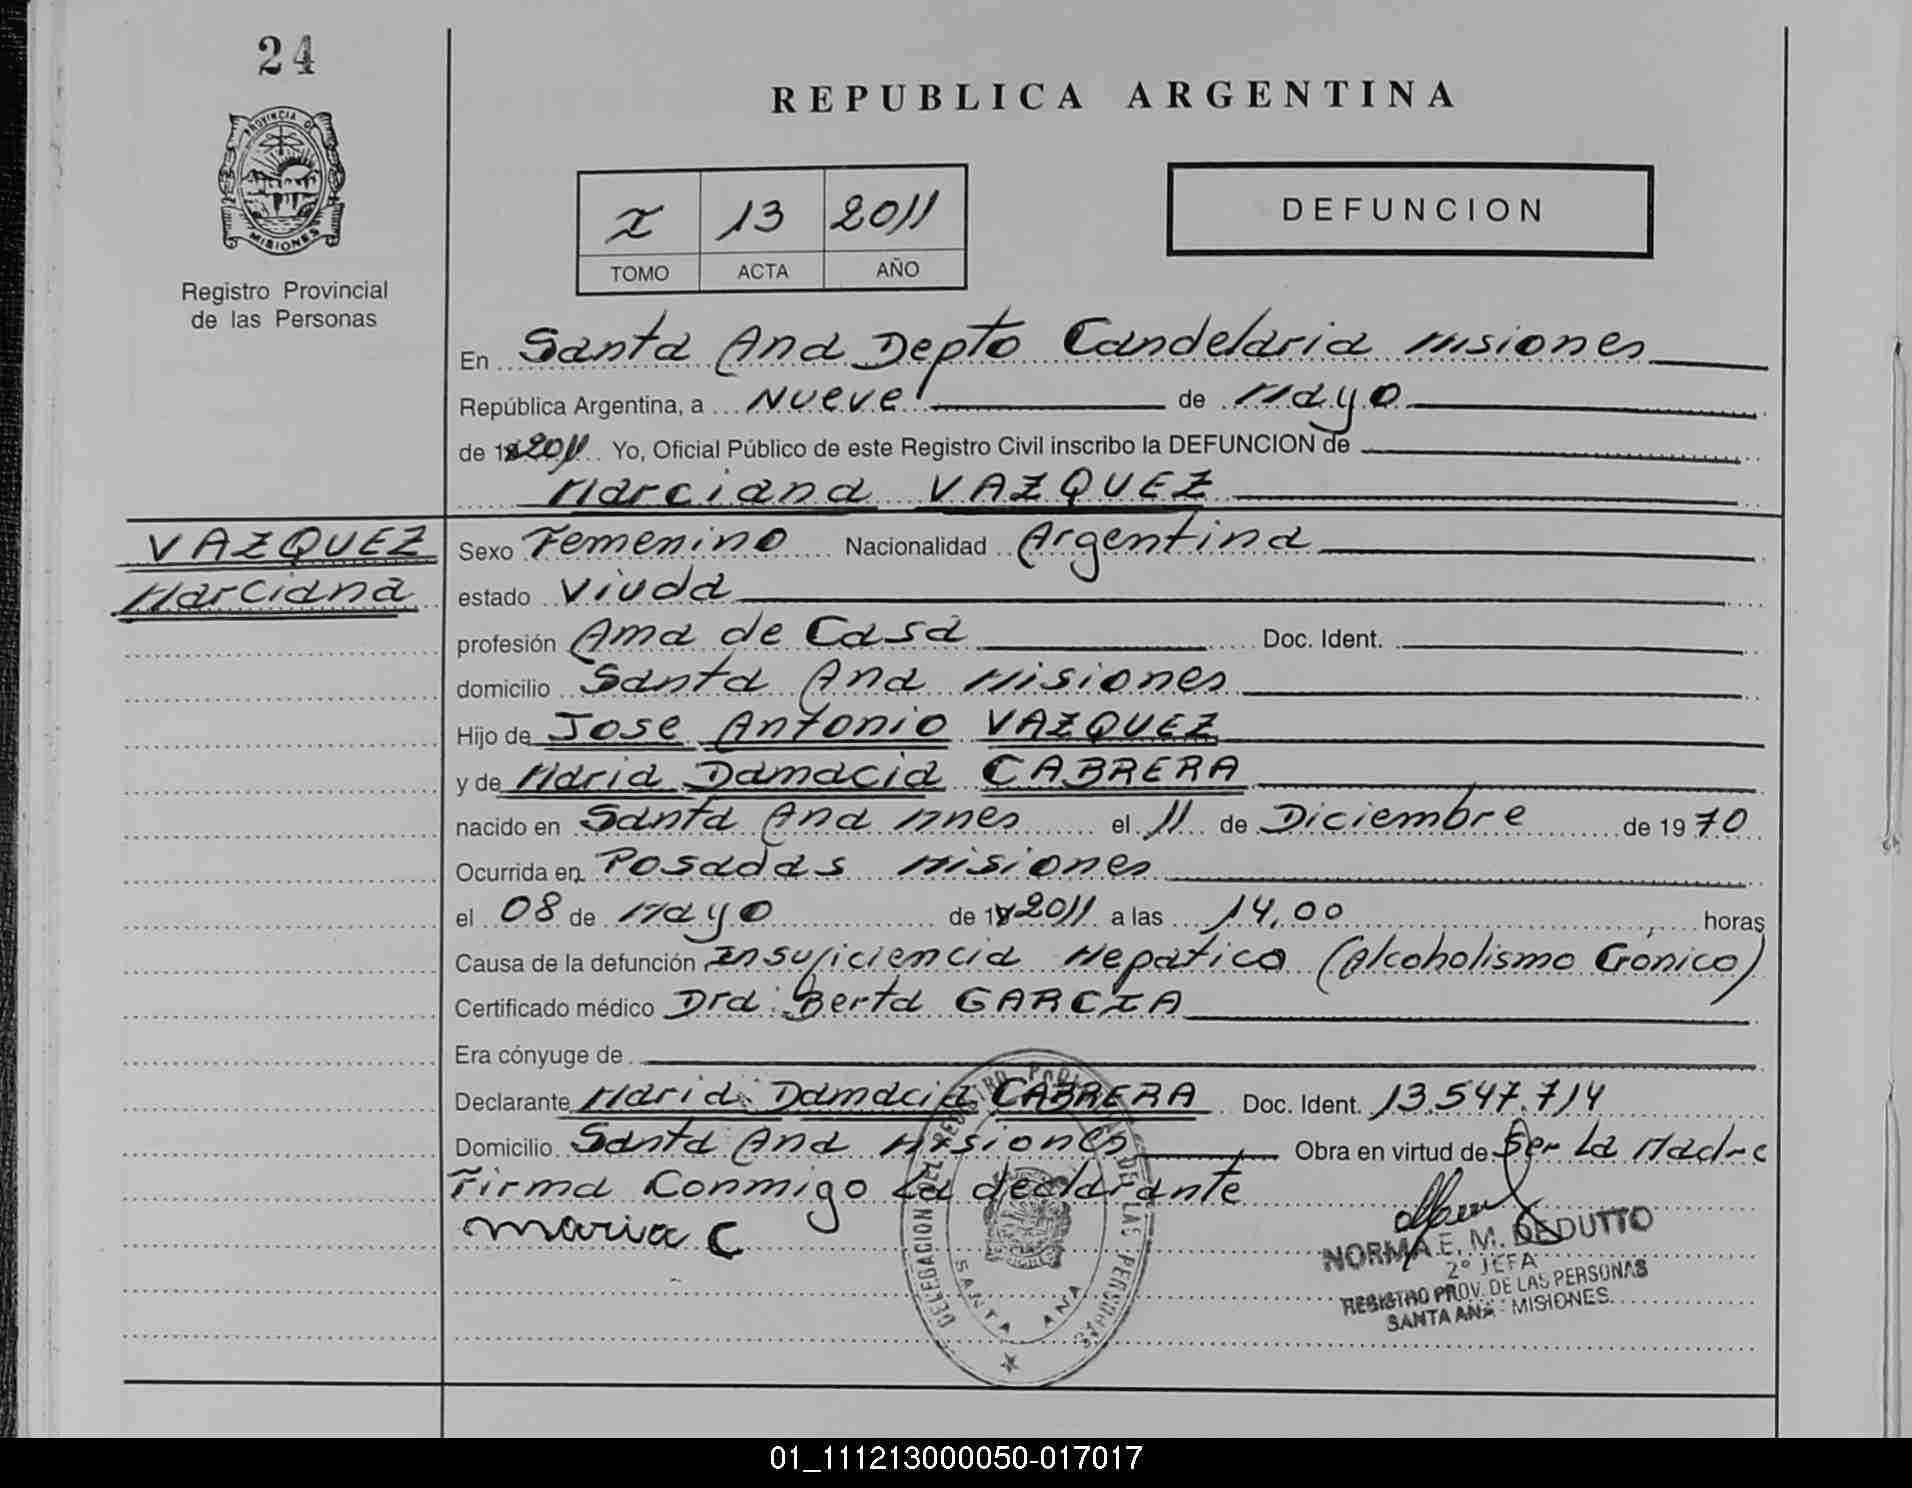 24
PROVINCIA DE
MISIONES
Registro Provincial
de las Personas
REPUBLICA ARGENTINA
I 13 2011
TOMO ACTA AÑO
DEFUNCION
En Santa Ana Depto Candelaria Misiones
República Argentina, a Nueve de Mayo
de 2011 Yo, Oficial Público de este Registro Civil inscribo la DEFUNCION de
Marciana VAZQUEZ
VAZQUEZ
Marciana
Sexo Femenino Nacionalidad Argentina
estado Viuda
profesión Ama de Casa Doc. Ident.
domicilio Santa Ana Misiones
Hijo de Jose Antonio VAZQUEZ
y de Maria Damacia CABRERA
nacido en Santa Ana Mnes el 11 de Diciembre de 1970
Ocurrida en Posadas Misiones
el 08 de Mayo de 2011 a las 14,00 horas
Causa de la defunción Insuficiencia Hepatica (Alcoholismo Cronico)
Certificado médico Dra: Berta GARCIA
Era cónyuge de
Declarante Maria Damacia CABRERA Doc. Ident. 13.547.714
Domicilio Santa Ana Misiones Obra en virtud de Ser La Madre
Firma Conmigo La declarante
maria C
DELEGACION DEL REGISTRO PROVINCIAL DE LAS PERSONAS
SANTA ANA
NORMA E. M. DEDUTTO
2° JEFA
REGISTRO PROV. DE LAS PERSONAS
SANTA ANA - MISIONES
01_111213000050-017017